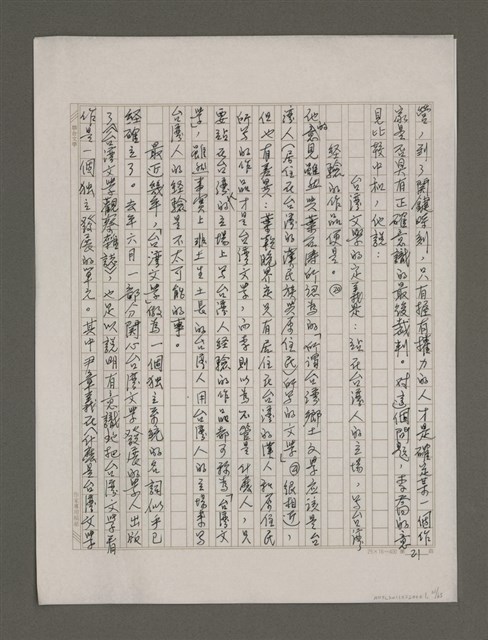 營,到了關鍵時刻,只有握有權力的人才是確定某一個作
家是否具有正確意識的最後裁判。對這個問題,李喬的意
見比較中和,他說:
台灣文學的定義是:站在台灣人的立場,寫台灣
經驗的作品便是。
他的意見雖與葉石濤所認為的「所謂台灣鄉土文學應該是台
灣人(居住在台灣的漢民族與原住民)所寫的文學」很相近,
但也有差異:葉較晚界定只有居住在台灣的漢人和原住民
所寫的作品才是台灣文學,而李則以為不管是什麼人,只
要站在台灣的立場上寫台灣人經驗的作品都可稱為「台灣文
學」,雖然事實上非土生土長的台灣人用台灣人的立場來寫
台灣人的經驗是不太可能的事。
最近幾年,「台灣文學」做為一個獨立系統的名詞似乎已
經確立了。去年六月一部分關心台灣文學發展的學人出版
了《台灣文學觀察雜誌》,也足以說明有意識地把台灣文學看
作是一個獨立發展的單元。其中尹章義在〈什麼是台灣文學
21